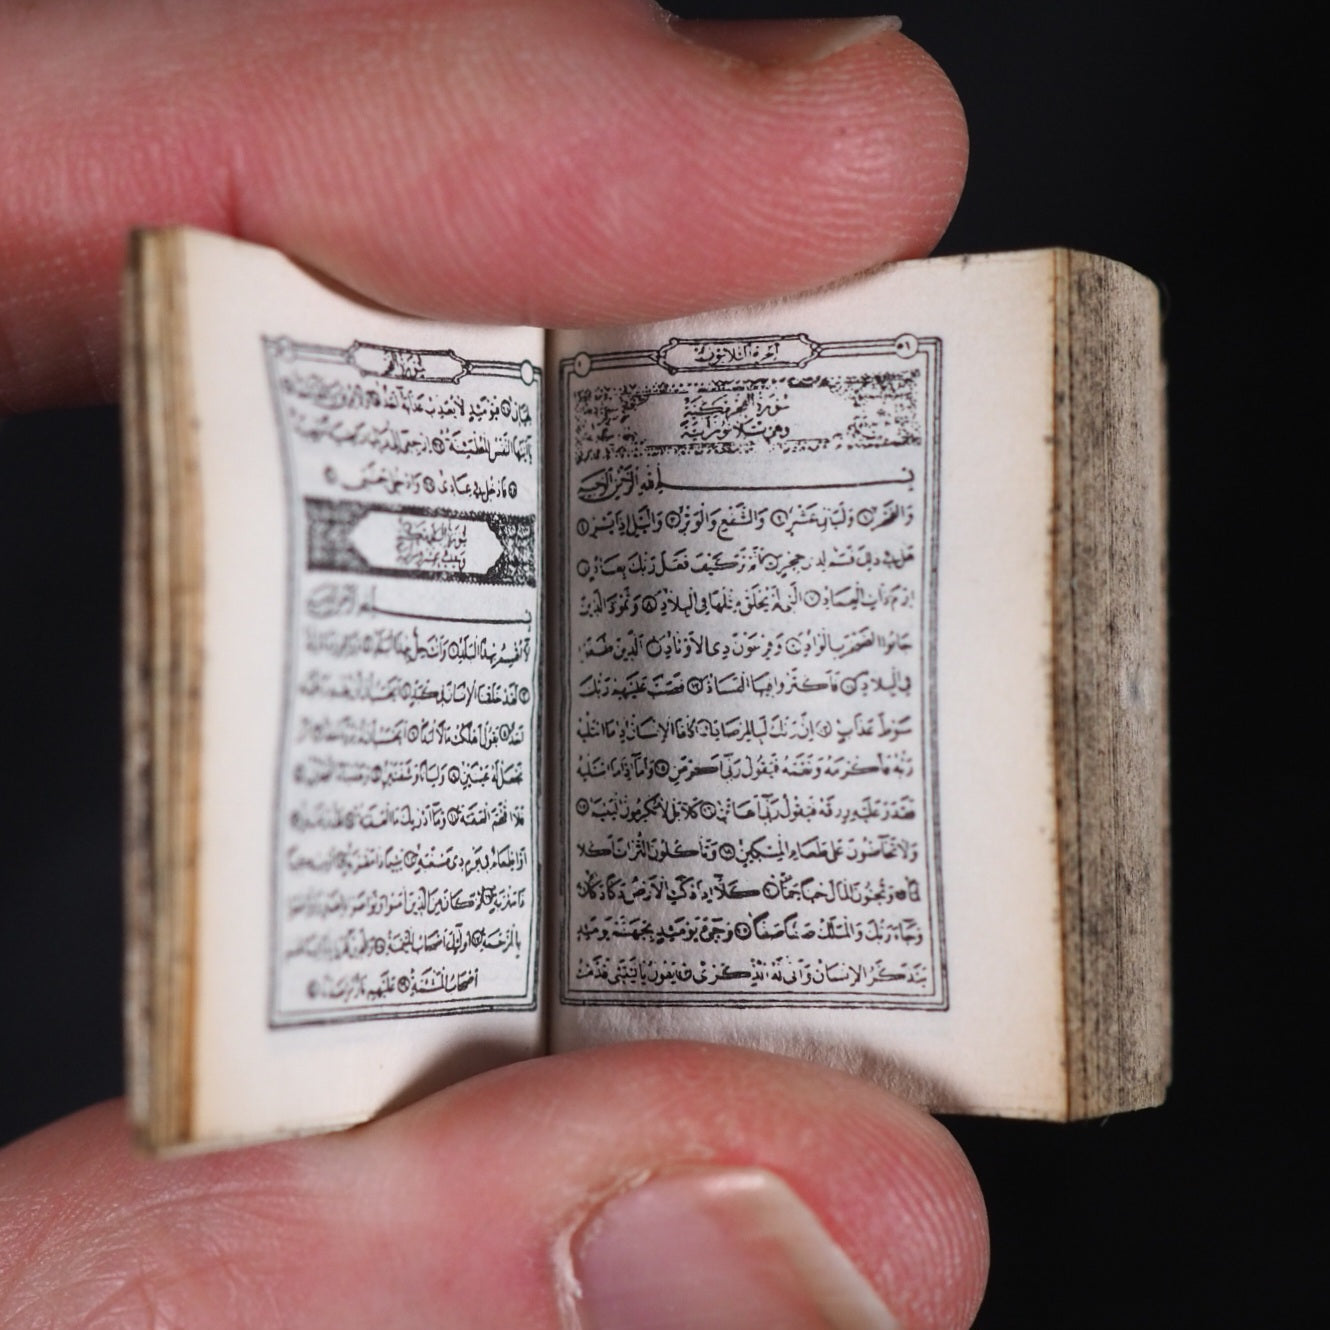 الجزء الثلاثون
سورة الفجر مكية
وهي ثلاثون آية
بسم الله الرحمن الرحيم
وَالْفَجْرِ وَلَيَالٍ عَشْرٍ وَالشَّفْعِ وَالْوَتْرِ وَاللَّيْلِ إِذَا يَسْرِ
هَلْ فِي ذَلِكَ قَسَمٌ لِذِي حِجْرٍ أَلَمْ تَرَ كَيْفَ فَعَلَ رَبُّكَ بِعَادٍ
إِرَمَ ذَاتِ الْعِمَادِ الَّتِي لَمْ يُخْلَقْ مِثْلُهَا فِي الْبِلَادِ وَثَمُودَ الَّذِينَ
جَابُوا الصَّخْرَ بِالْوَادِ وَفِرْعَوْنَ ذِي الْأَوْتَادِ الَّذِينَ طَغَوْا
فِي الْبِلَادِ فَأَكْثَرُوا فِيهَا الْفَسَادَ فَصَبَّ عَلَيْهِمْ رَبُّكَ
سَوْطَ عَذَابٍ إِنَّ رَبَّكَ لَبِالْمِرْصَادِ فَأَمَّا الْإِنْسَانُ إِذَا مَا ابْتَلَيهُ
رَبُّهُ فَأَكْرَمَهُ وَنَعَّمَهُ فَيَقُولُ رَبِّي أَكْرَمَنِ وَأَمَّا إِذَا مَا ابْتَلَيهُ
فَقَدَرَ عَلَيْهِ رِزْقَهُ فَيَقُولُ رَبِّي أَهَانَنِ كَلَّا بَلْ لَا تُكْرِمُونَ الْيَتِيمَ
وَلَا تَحَاضُّونَ عَلَى طَعَامِ الْمِسْكِينِ وَتَأْكُلُونَ التُّرَاثَ أَكْلًا
لَمًّا وَتُحِبُّونَ الْمَالَ حُبًّا جَمًّا كَلَّا إِذَا دُكَّتِ الْأَرْضُ دَكًّا دَكًّا
وَجَاءَ رَبُّكَ وَالْمَلَكُ صَفًّا صَفًّا وَجِيءَ يَوْمَئِذٍ بِجَهَنَّمَ يَوْمَئِذٍ
يَتَذَكَّرُ الْإِنْسَانُ وَأَنَّى لَهُ الذِّكْرَى يَقُولُ يَا لَيْتَنِي قَدَّمْتُ
سورة الفجر
لِحَيَاتِي فَيَوْمَئِذٍ لَا يُعَذِّبُ عَذَابَهُ أَحَدٌ
يَا أَيَّتُهَا النَّفْسُ الْمُطْمَئِنَّةُ ارْجِعِي إِلَى رَبِّكِ
فَادْخُلِي فِي عِبَادِي وَادْخُلِي جَنَّتِي
سورة البلد مكية
بسم الله الرحمن الرحيم
لَا أُقْسِمُ بِهَذَا الْبَلَدِ وَأَنْتَ حِلٌّ بِهَذَا الْبَلَدِ
لَقَدْ خَلَقْنَا الْإِنْسَانَ فِي كَبَدٍ أَيَحْسَبُ
أَحَدٌ يَقُولُ أَهْلَكْتُ مَالًا لُبَدًا أَيَحْسَبُ
نَجْعَلْ لَهُ عَيْنَيْنِ وَلِسَانًا وَشَفَتَيْنِ
فَلَا اقْتَحَمَ الْعَقَبَةَ وَمَا أَدْرَيكَ مَا الْعَقَبَةُ
أَوْ إِطْعَامٌ فِي يَوْمٍ ذِي مَسْغَبَةٍ يَتِيمًا ذَا مَقْرَبَةٍ
ذَا مَتْرَبَةٍ ثُمَّ كَانَ مِنَ الَّذِينَ آمَنُوا وَتَوَاصَوْا
بِالْمَرْحَمَةِ أُولَئِكَ أَصْحَابُ الْمَيْمَنَةِ
أَصْحَابُ الْمَشْئَمَةِ عَلَيْهِمْ نَارٌ مُؤْصَدَةٌ